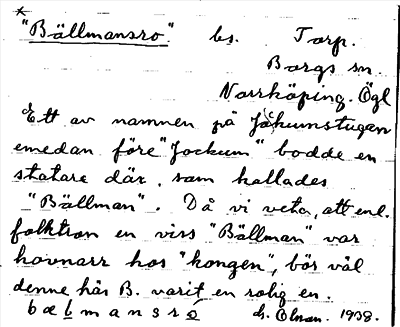 "Bällmansro". bs. Torp.
Borgs sn.
Norrköping. Ögl
Ett av namnen på Jåkumstugan
emedan före "Jockum" bodde en
statare där, som kallades
"Bällman". Då vi veta, att enl.
folktron en viss "Bällman" var
hovnarr hos "kongen", bör väl
denne här B. varit en rolig en.
bælmansro h. Ólnan. 1938.